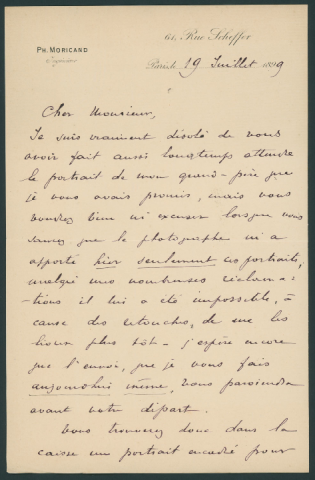 61, Rue Scheffer
PH. MORICAND
Ingénieur
Paris le 19 Juillet 1899
Cher Monsieur,
Je suis vraiment désolé de vous
avoir fait aussi longtemps attendre
le portrait de mon grand-père que
je vous avais promis, mais vous
voudrez bien m'excuser lorsque vous
saurez que le photographe m'a
apporté hier seulement ces portraits,
malgré mes nombreuses réclama-
tions il lui a été impossible, à
cause des retouches, de me les
livrer plus tôt - j'espère encore
que l'envoi, que je vous fais
aujourd'hui même, vous parviendra
avant votre départ.
Vous trouverez donc dans la
caisse un portrait encadré pour